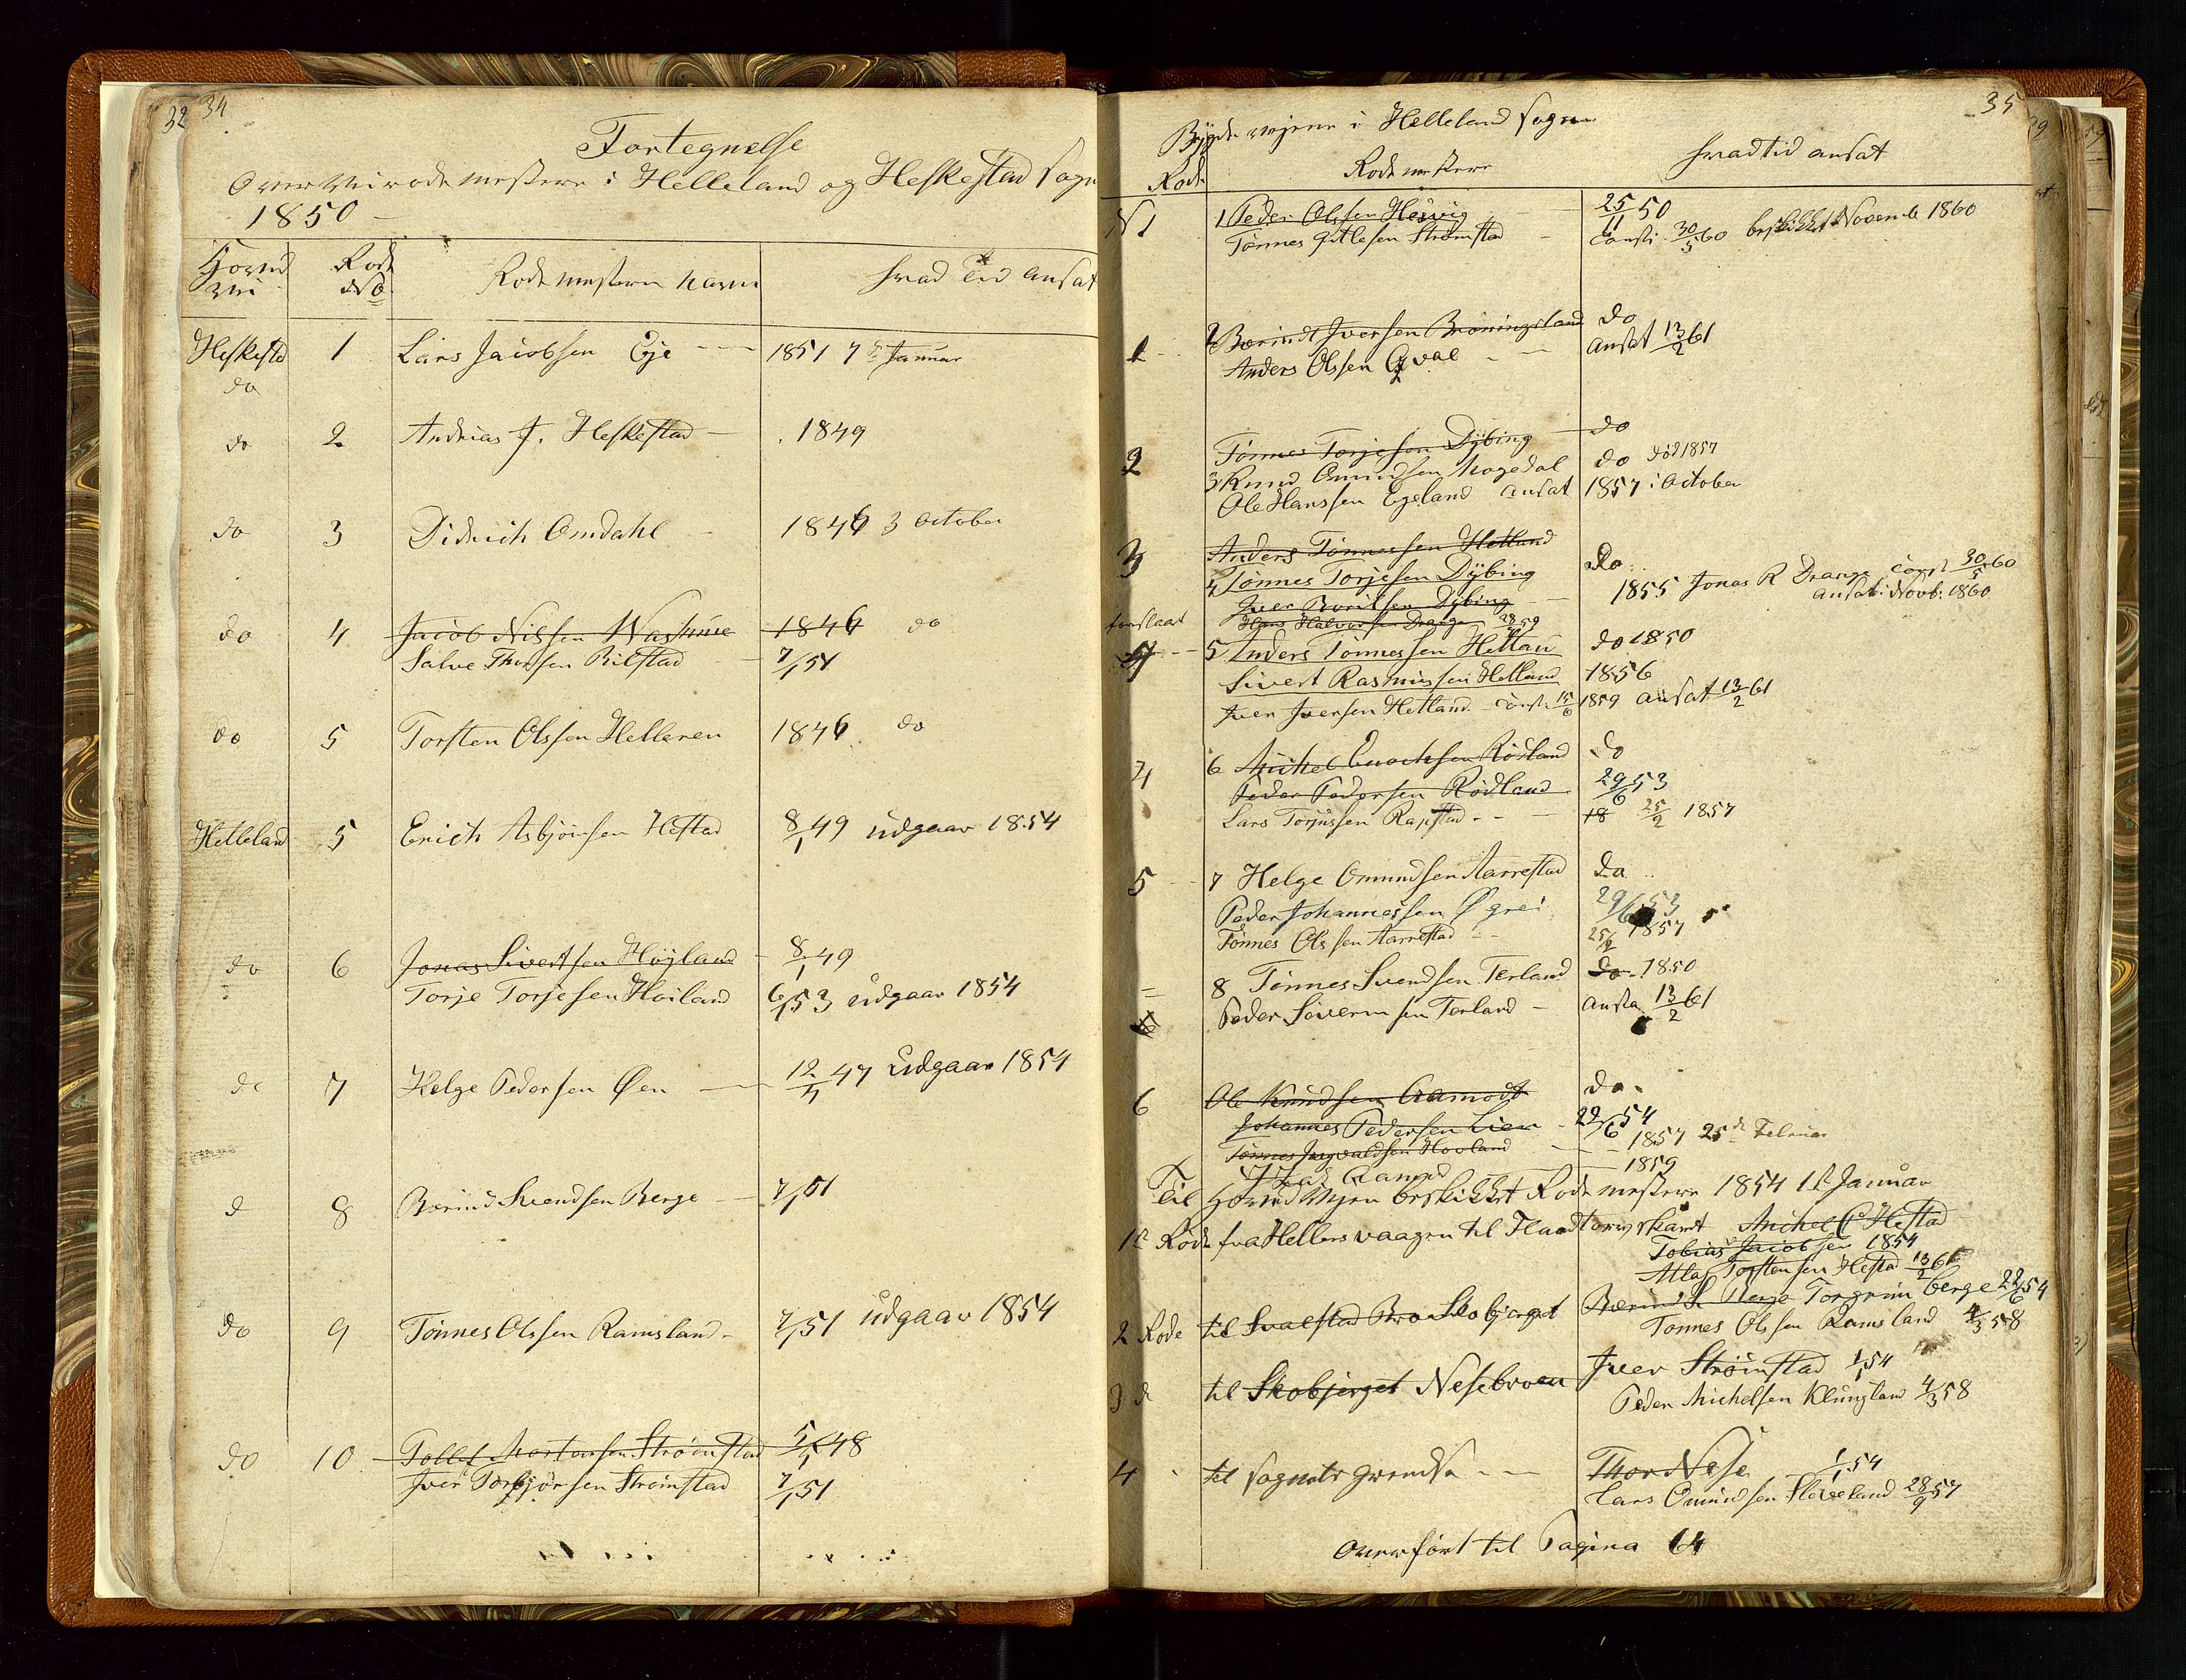 32 34
Fortegnelse
Over Veirodemestere i Helleland og Heskestad Sogn
1850 -
Hoved Rode Rodemesteren Navn hvad Tid ansat
Vei No
Heskesta 1 Lars Jacobsen Eje - - 1851 7de Januar
do
do 2 Andreas J. Heskestad - 1849
do 3 Didrich Omdahl - 1846 3 October
do 4 Jacob Nilsen 1846 do
Salve Thorsen Bilstad - 7/1 51
do 5 Torsten Olssen Helleren 1846 do
Helleland 5 Erich Asbjørnsen Hestad 8/1 49 udgaar 1854
do 6 Jonas Sivertsen Højland 8/1 49
Torje Torjesen Høiland 6/1 53 udgaar 1854
do 7 Helge Pedersen Øen - 12/4 47 udgaar 1854
d 8 Berind Svendsen Berge - 7/1 51
do 9 Tønnes Olssen Ramsland - 7/1 51 udgaar 1854
do 10 Tollef Mortensen Strømstad 5/1 48
Iver Torbjørnsen Strømstad 7/1 51
35
Bygdeveiene i Helleland Sogn
Rode Rodemestere hvad tid ansat
N 1 1 Peder Olssen Hesvig 25/11 50
Tønnes Gitlesen Strømstad - Consti 30/5 60 beskikket Novemb 1860
1 - 2 Berindt Iversen Brøningsland do
Anders Olssen Qval - - ansat 13/2 61
2 Tønnes Torjesen Dybing - do
3 Knud Omundsen Mogedal do død 1857
Ole Hanssen Egeland ansat 1857 i October
3 Anders Tønnessen Hetland
4 Tønnes Torjesen Dybing do
Iver Dybing - 1855 Jonas R Drange const 30/5 60
ansat i Novb: 1860
Hans Halvorsen Drange 59
5 Anders Tønnessen Hetlan do 1850
Sivert Rasmussen Helland 1856
Iver Iversen Hetland - const 15/6 1859 ansat 13/2 61
4 6 Michel Enochsen Rødland do
Peder Pedersen Rødland 29/6 53
Lars Torjussen Rapstad - - 18 25/2 1857
5 - 7 Helge Omundsen Aarrestad do
Peder Johannessen Øgrei 29/6 53
Tønnes Olssen Aarrestad - - 25/2 1857
8 Tønnes Svendsen Terland do 1850
Peder Sivermsen Terland - ansa 13/2 61
6 Ole Knudsen Aamodt do
Johannes Pedersen Lien - 29/6 54
Tønnes Ingvaldsen Hovland - - 1857 25de Februar
1859
Til Hovedvejen beskikket Rodemestere 1854 1te Januar
1te Rode fra Hellersvaagen til Michel C Hestad
Tobias Jacobsen 1854
Atlag Torstensen Hestad 13/2 61
2 Rode til Svalestad Bro Skobjerget Berind S. Berge Torgrim Berge 29/6 54
Tonnes Olssen Ramsland 4/3 58
3 d til Skobjerget Nesebroen Iver Strømstad 1/1 54
Peder Michelsen Klungland 4/3 58
4 - til Sognets Grendse - - Thor Nese 1/1 54
Lars Omundsen Slæveland 28/9 57
Overført til Pagina 64